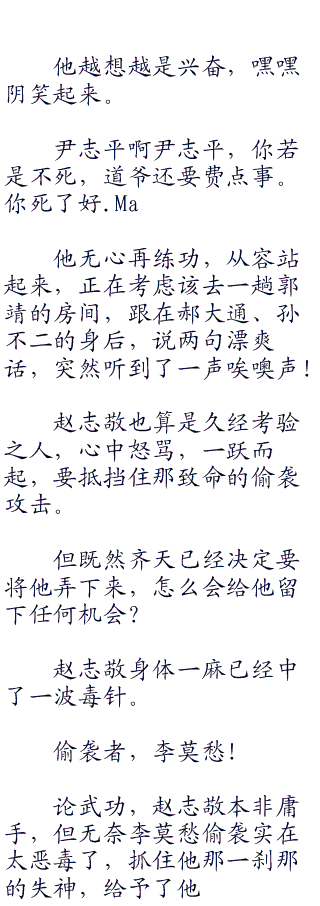 他越想越是兴奋，嘿嘿
阴笑起来。
尹志平啊尹志平，你若
是不死，道爷还要费点事。
你死了好.Ma
他无心再练功，从容站
起来，正在考虑该去一趟郭
靖的房间，跟在郝大通、孙
不二的身后，说两句漂爽
话，突然听到了一声唉噢声！
赵志敬也算是久经考验
之人，心中怒骂，一跃而
起，要抵挡住那致命的偷袭
攻击。
但既然齐天已经决定要
将他弄下来，怎么会给他留
下任何机会？
赵志敬身体一麻已经中
了一波毒针。
偷袭者，李莫愁！
论武功，赵志敬本非庸
手，但无奈李莫愁偷袭实在
太恶毒了，抓住他那一刹那
的失神，给予了他